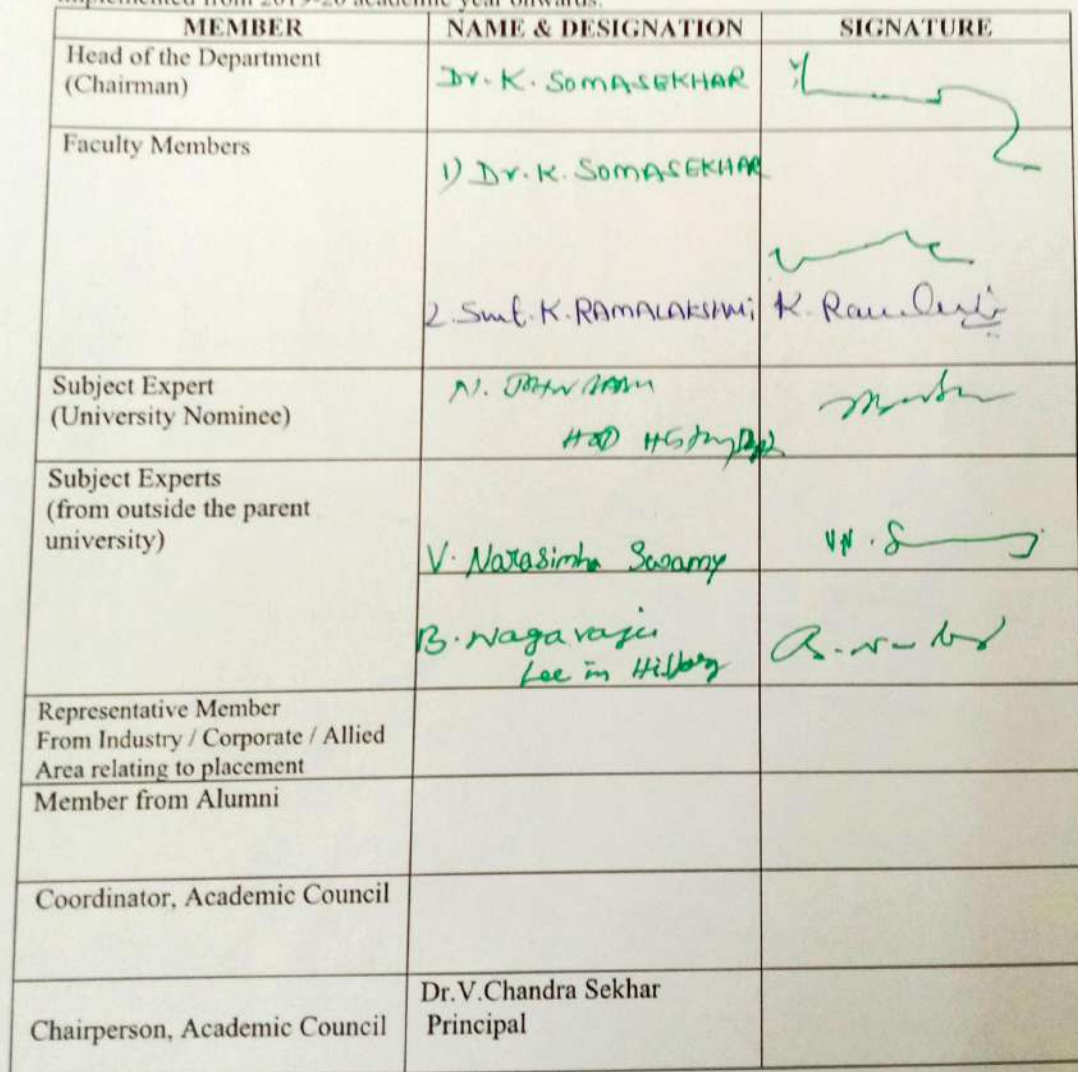 implemented from 2019-20 academic year onwards.
MEMBER NAME & DESIGNATION SIGNATURE
Head of the Department
(Chairman)
Dr. K. SOMASEKHAR
Faculty Members
1) Dr. K. SOMASEKHAR
2. Smt. K. RAMALAKSHMI K.
Subject Expert
(University Nominee)
N.
HOD History Dept
Subject Experts
(from outside the parent
university)
V. Narasimha Swamy V N. S
B. Nagaraju
Lec in History
Representative Member
From Industry / Corporate / Allied
Area relating to placement
Member from Alumni
Coordinator, Academic Council
Chairperson, Academic Council
Dr.V.Chandra Sekhar
Principal